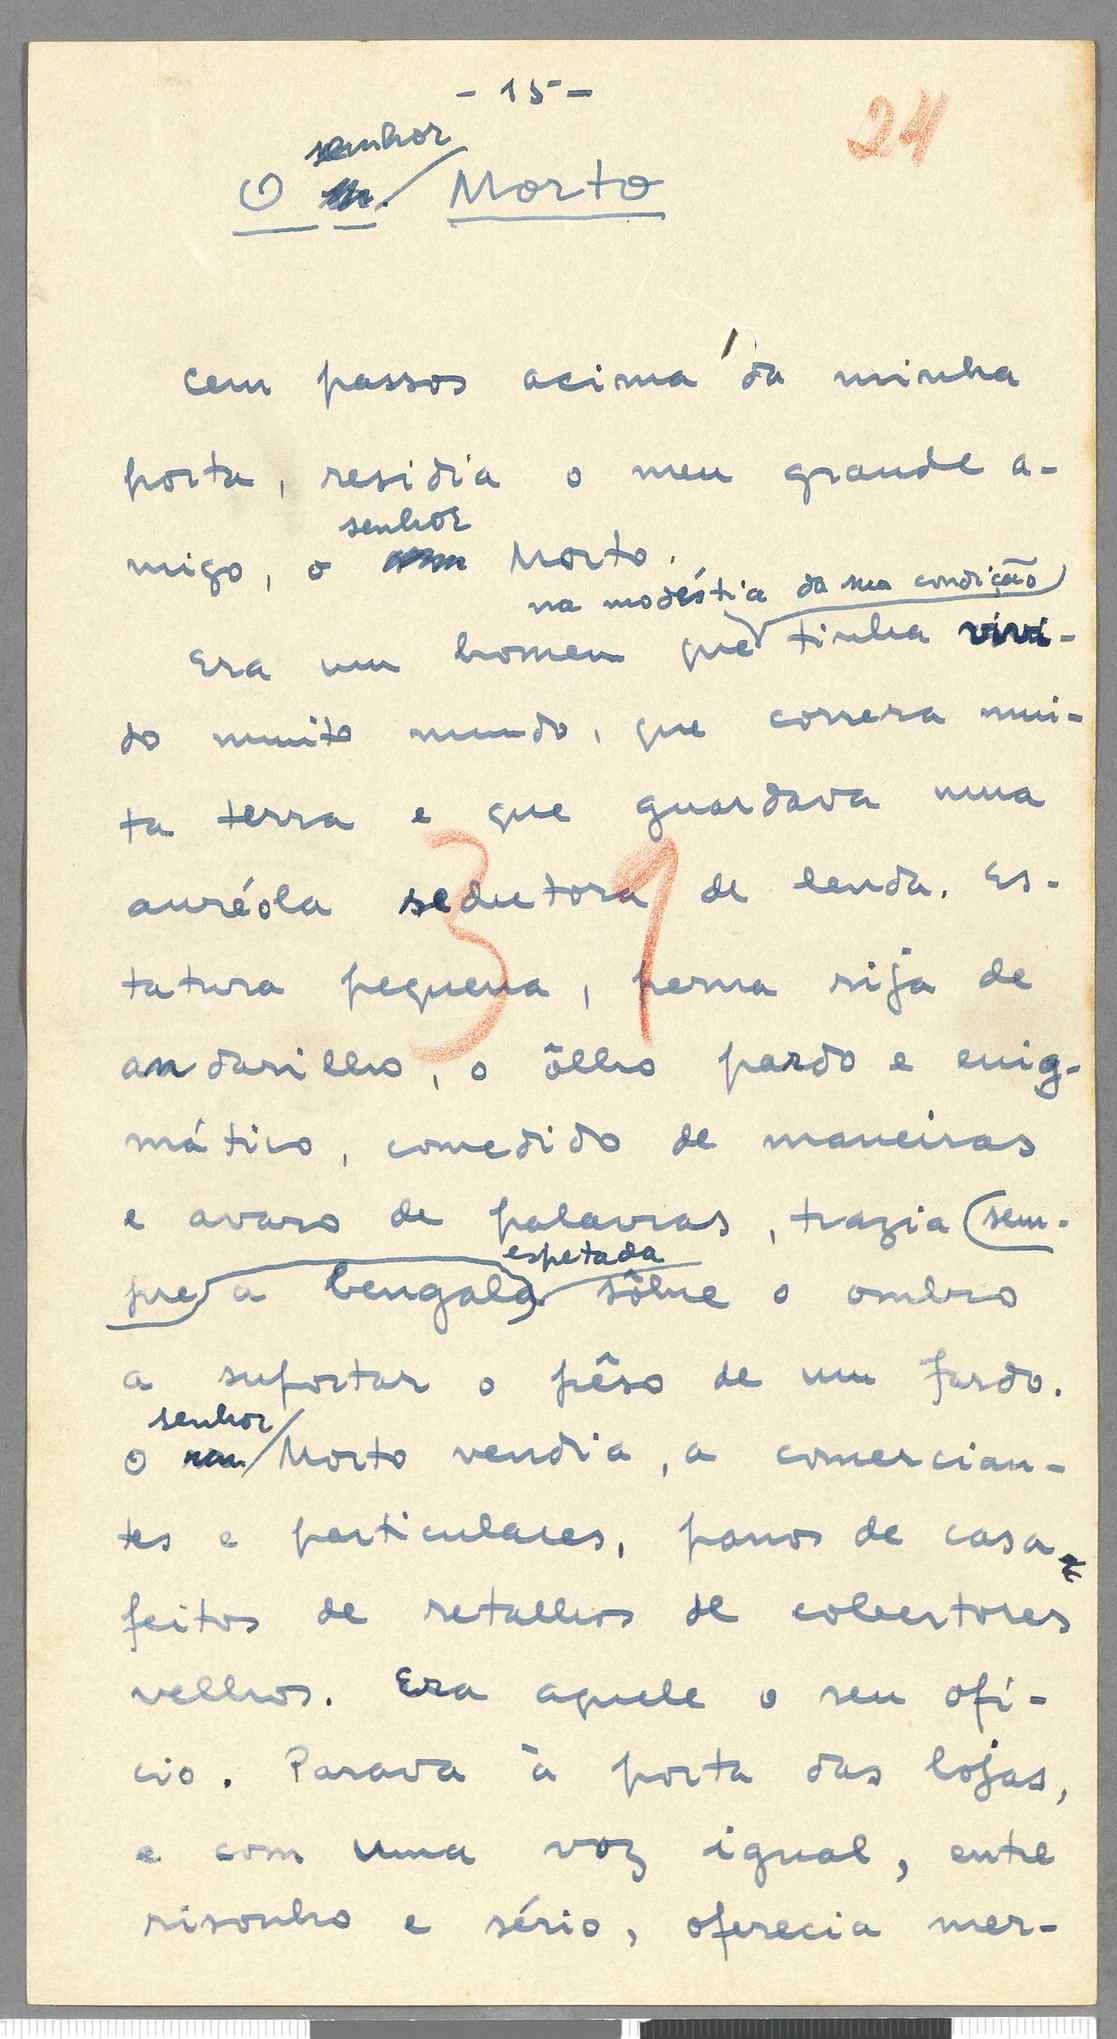 - 15 -
24
senhor
O Morto
Cem passos acima da minha
porta, residia o meu grande a-
senhor
migo, o Morto.
na modéstia da sua condição
Era um homem que tinha vivi-
do muito mundo, que correra mui-
ta terra e que guardava uma
auréola sedutora de lenda. Es-
31
tatura pequena, perna rija de
andarilho, o ôlho pardo e enig-
mático, comedido de maneiras
e avaro de palavras, trazia sem-
espetada
pre a bengala sôbre o ombro
a suportar o pêso de um fardo.
senhor
O Morto vendia, a comercian-
tes e particulares, panos de casa
feitos de retalhos de cobertores
velhos. Era aquele o seu ofí-
cio. Parava à porta das lojas,
e com uma voz igual, entre
risonho e sério, oferecia mer-